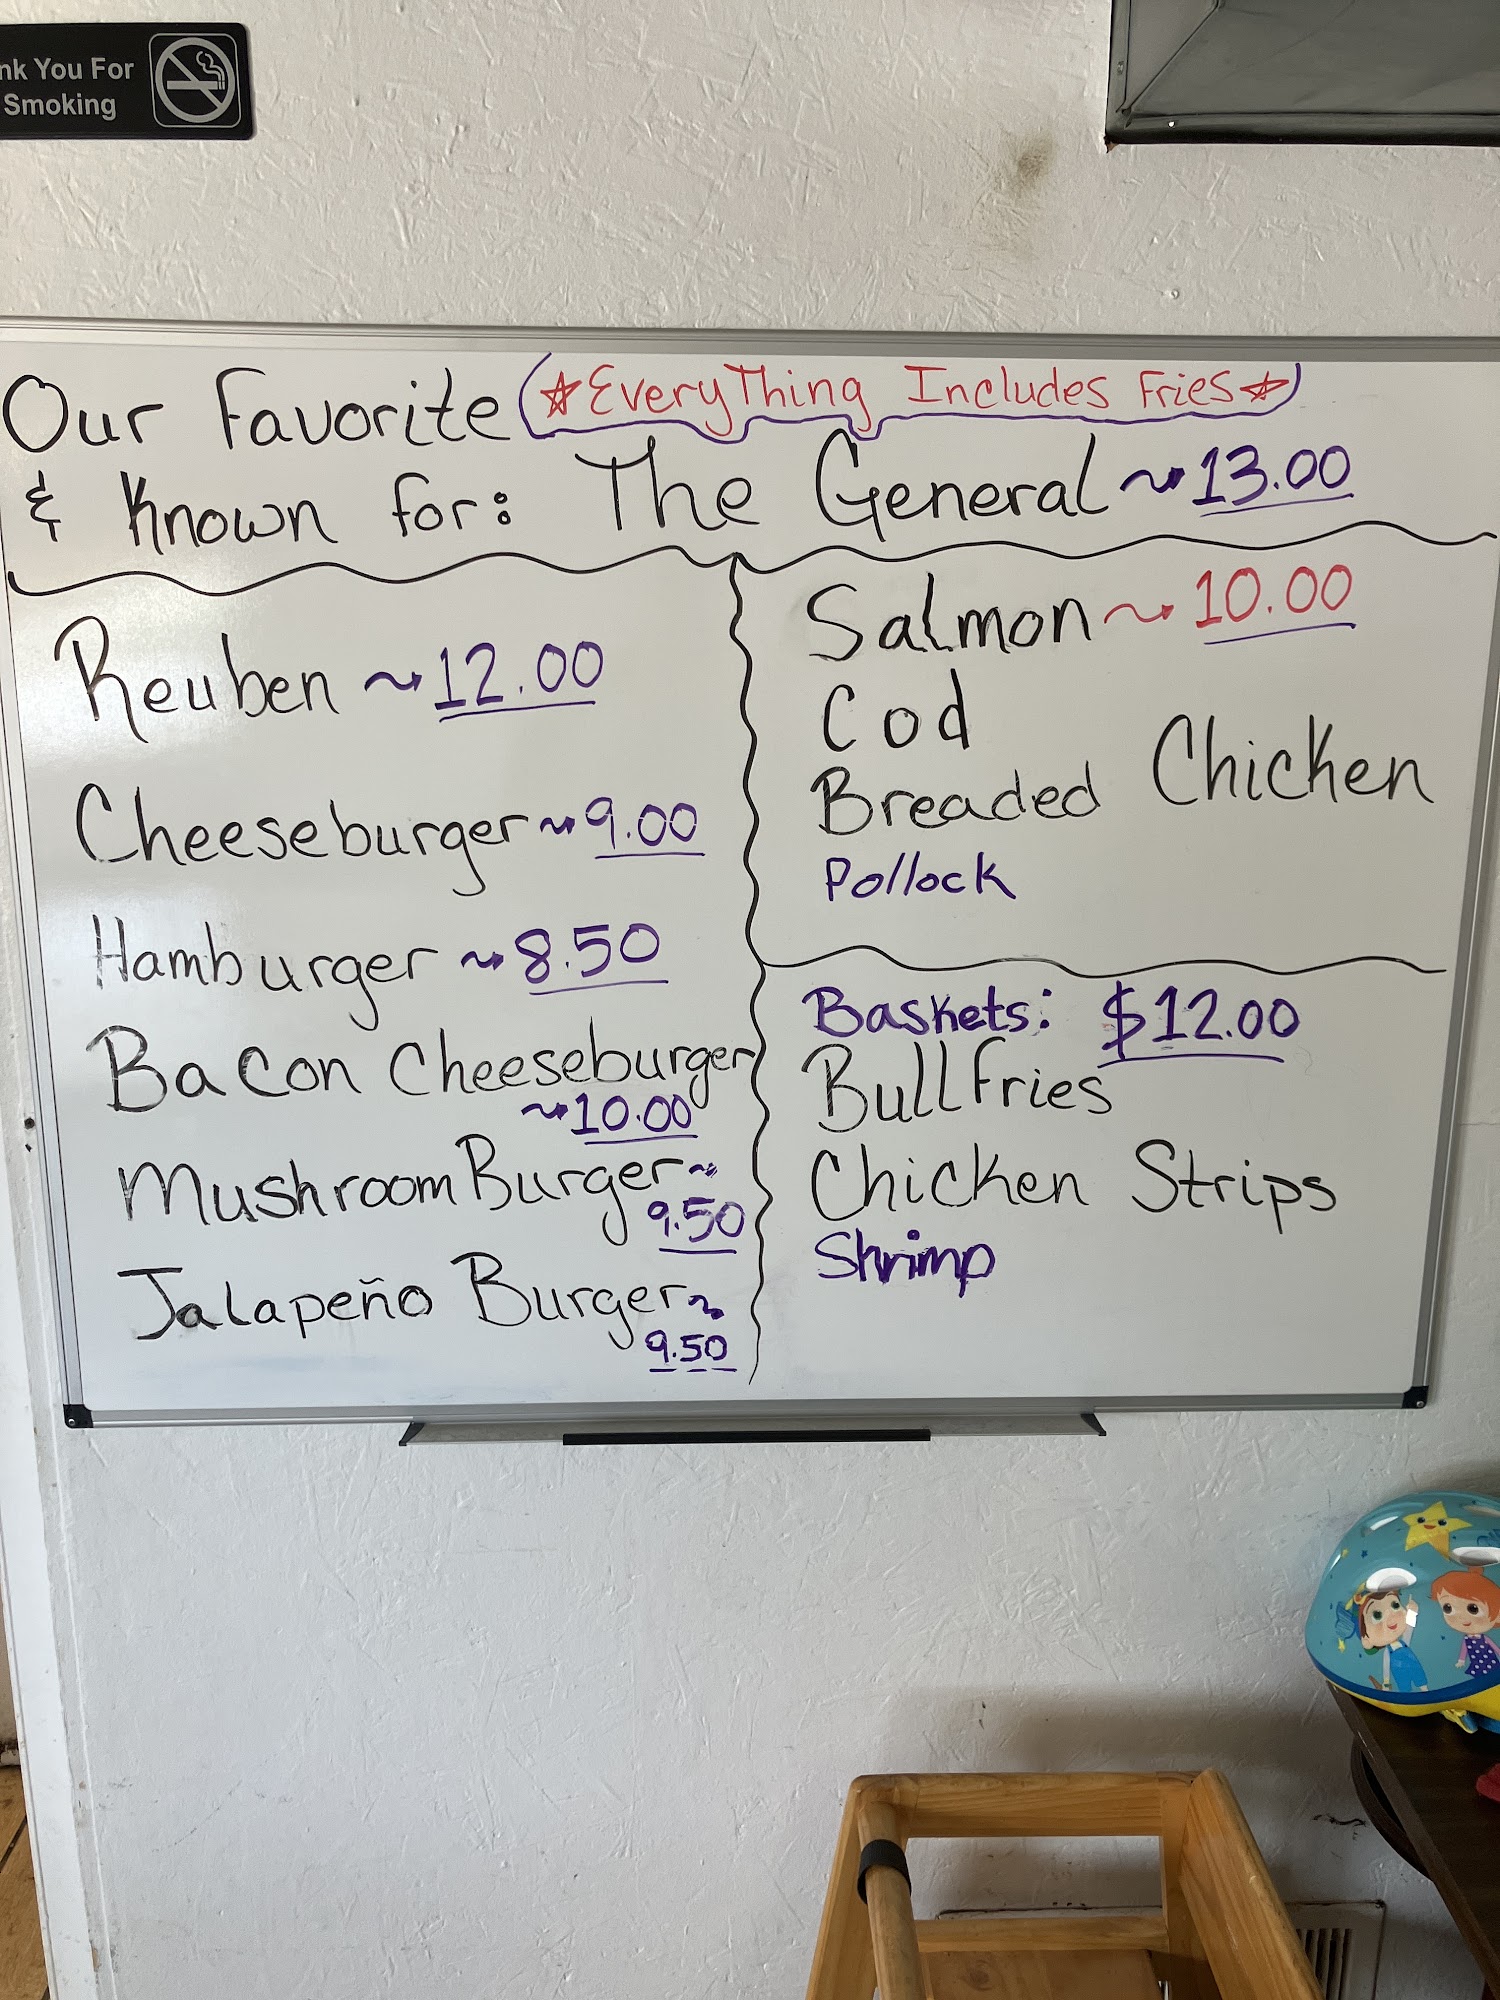 nk You For
Smoking
Our Favorite ☆Everything Includes Fries☆
& Known for: The General ~ 13.00
Reuben ~ 12.00
Cheeseburger ~ 9.00
Hamburger ~ 8.50
Bacon Cheeseburger
~ 10.00
Mushroom Burger ~
9.50
Jalapeño Burger ~
9.50
Salmon ~ 10.00
Cod
Breaded Chicken
Pollock
Baskets: $12.00
Bull Fries
Chicken Strips
Shrimp